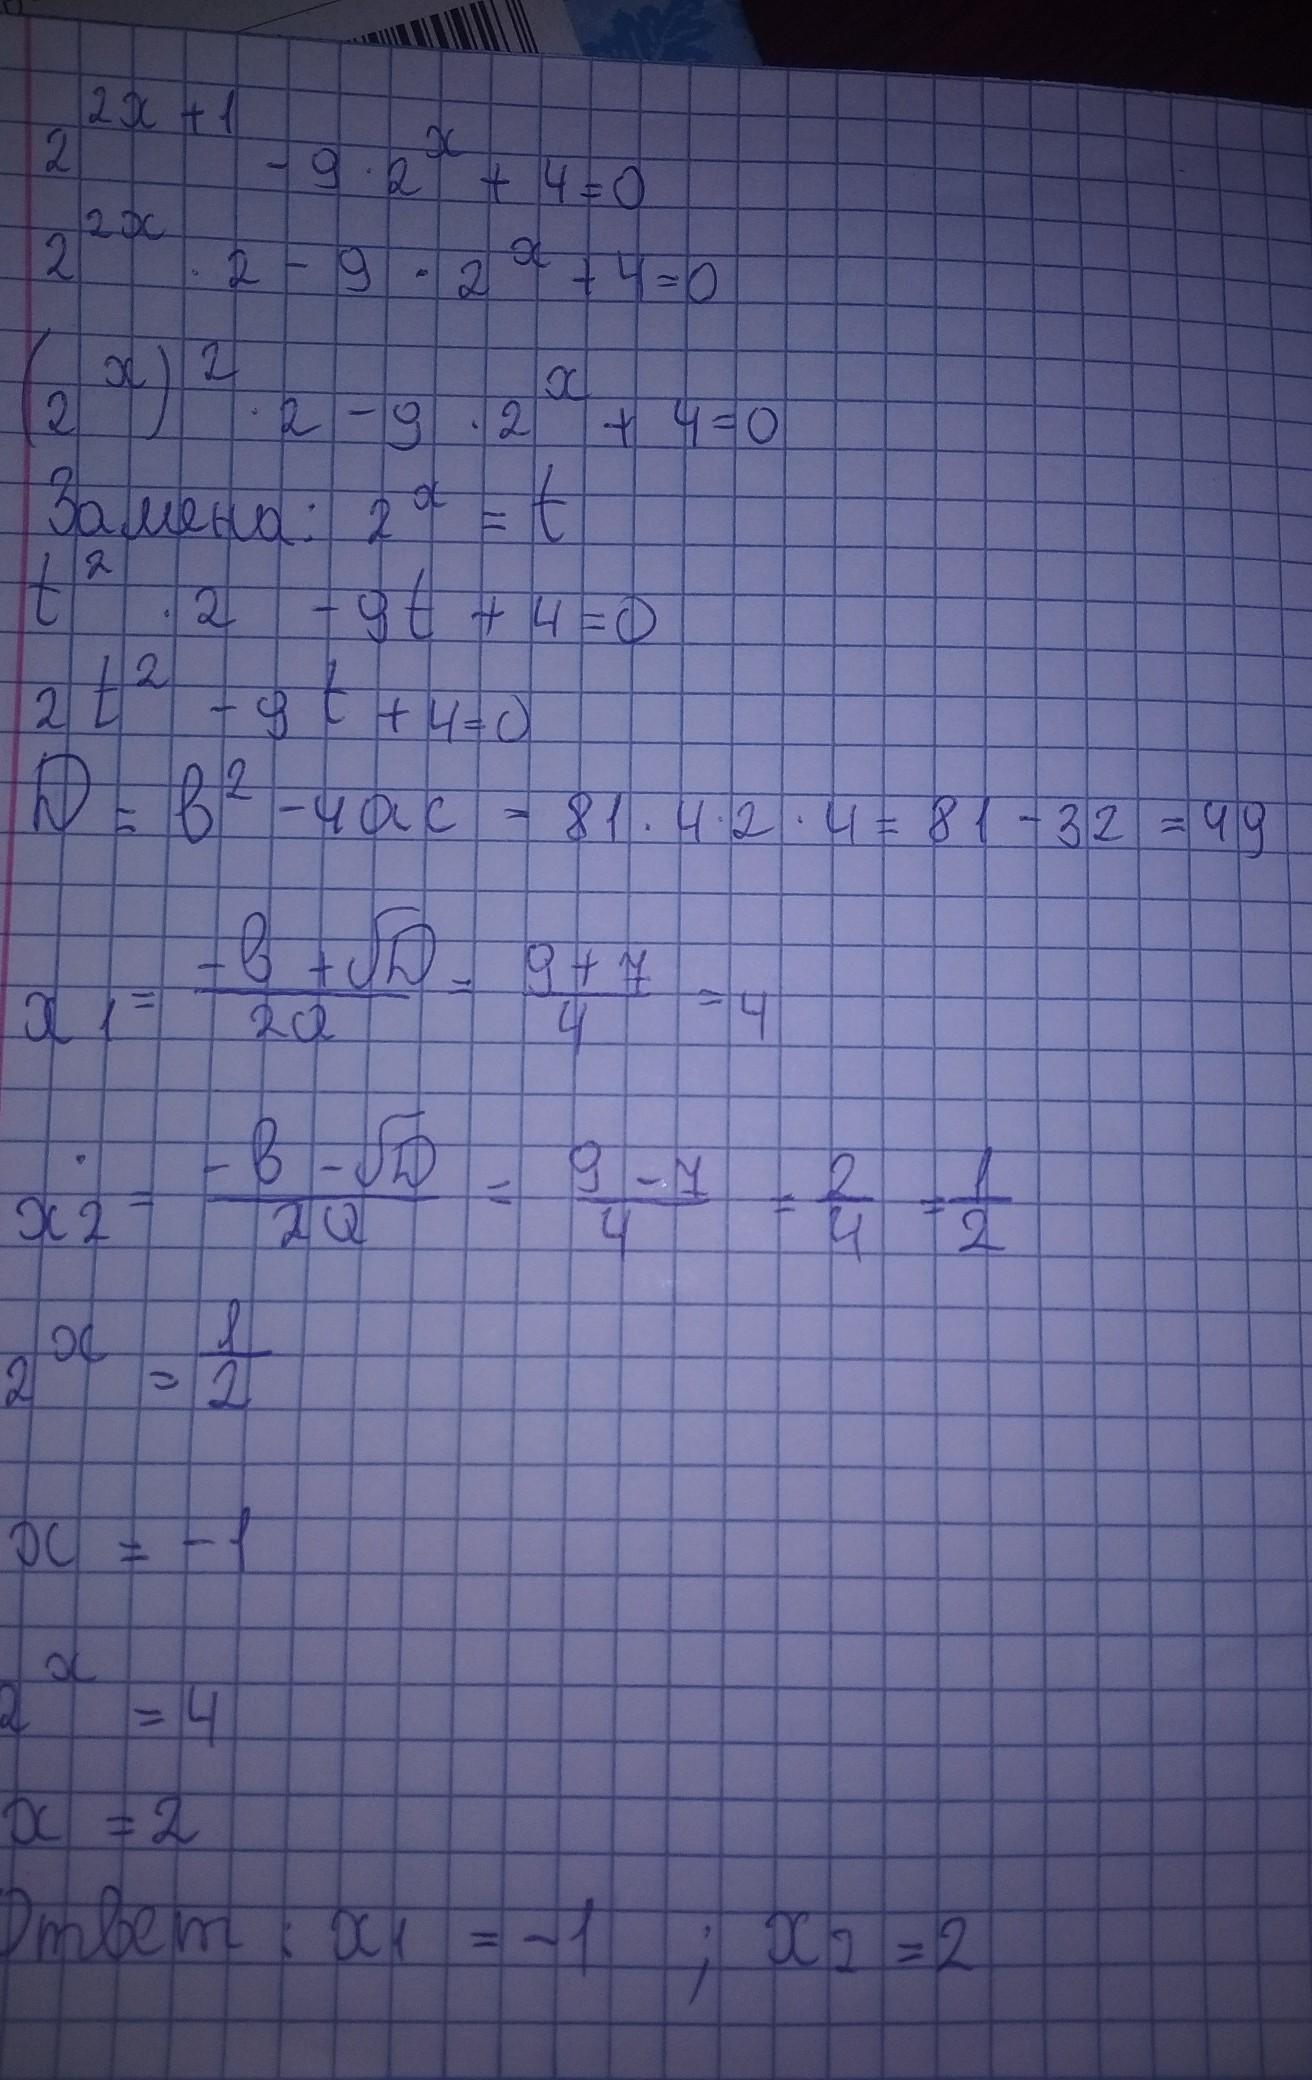 2^{2x+1} - 9 · 2^x + 4 = 0
2^{2x} · 2 - 9 · 2^x + 4 = 0
(2^x)^2 · 2 - 9 · 2^x + 4 = 0
Замена: 2^x = t
t^2 · 2 - 9t + 4 = 0
2t^2 - 9t + 4 = 0
D = b^2 - 4ac = 81 · 4 · 2 · 4 = 81 - 32 = 49
x1 = \frac{-b + √D}{2a} = \frac{9 + 7}{4} = 4
x2 = \frac{-b - √D}{2a} = \frac{9 - 7}{4} = \frac{2}{4} = \frac{1}{2}
2^x = \frac{1}{2}
x = -1
2^x = 4
x = 2
Ответ: x1 = -1 ; x2 = 2